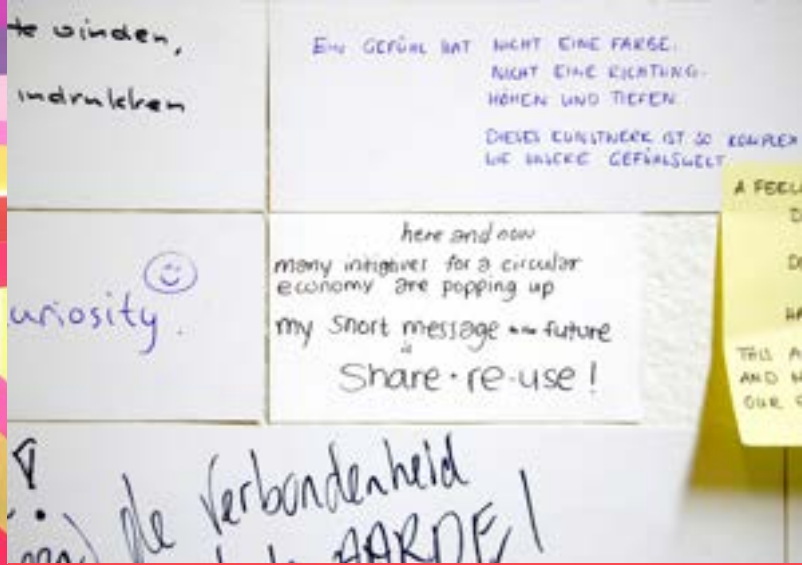 te vinden,
indrukken
EIN GEFÜHL HAT NICHT EINE FARBE.
NICHT EINE RICHTUNG.
HÖHEN UND TIEFEN
DIESES KUNSTWERK IST SO KOMPLEX
WIE UNSERE GEFÜHLSWELT
A FEEL
THIS A
AND
OUR
uriosity.
here and now
many initiatives for a circular
economy are popping up
my short message future
is
Share · re-use!
de Verbondenheid
AARDE!